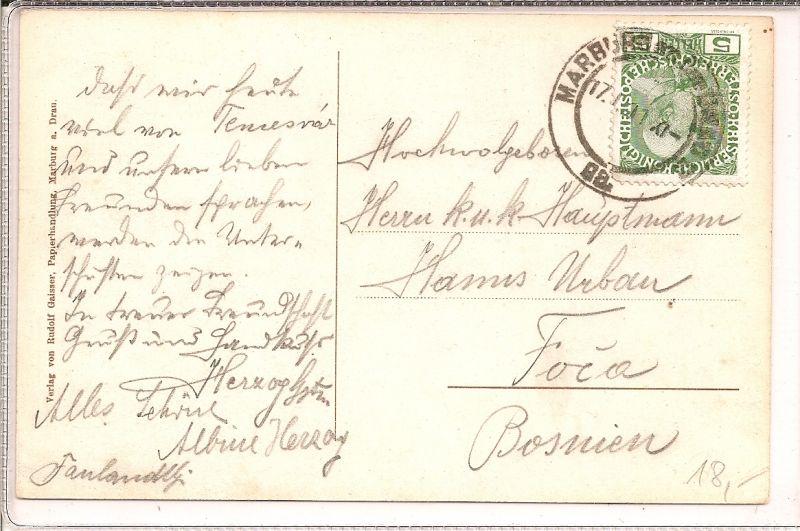 Daß wir heute
viel von Temesvár
und unsern lieben
Freunden sprachen,
werden die Unter-
schriften zeigen.
In treuer Freundschaft
Gruß und Handkuß
Herzog
Alles Schöne
Albine Herzog
Verlag von Rudolf Gaisser, Papierhandlung, Marburg a. Drau.
MARBURG
17.
11
5
KAISERLICHE KÖNIGLICHE ÖSTERREICHISCHE POST
Hochwolgeboren
Herrn k. u. k. Hauptmann
Hanns Urban
Foča
Bosnien
18,-